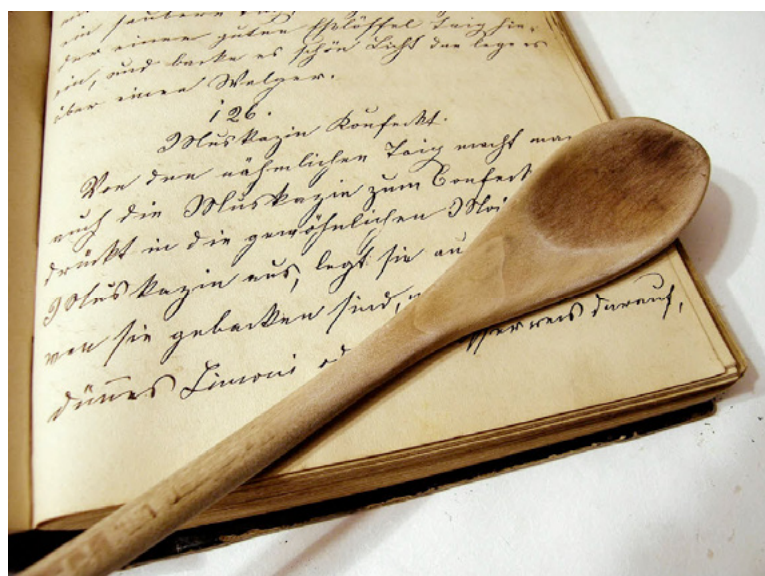 ein
der einen guten Eßlöffel Taig hin,
ein, und backe es schön Licht dan lege es
über einen Walger.
126.
Muskazin Konfeckt.
Von den nähmlichen Taig macht man
auch die Muskazin zum Confeckt
drückt in die gewöhnlichen
Muskazin aus, legt sie
wen sie gebacken sind,
dünes Limoni darauf,